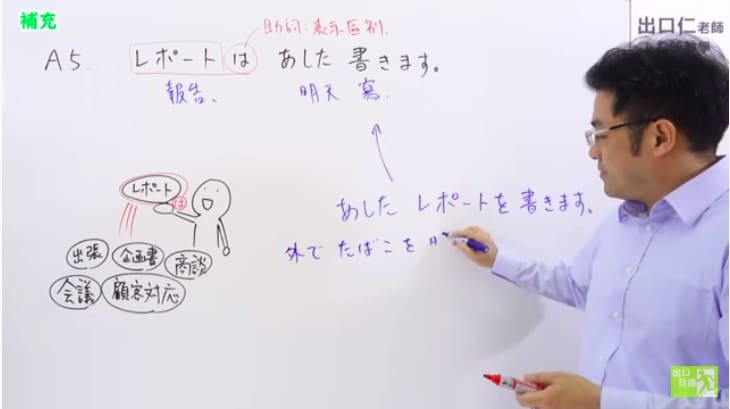 補充
助詞:表示区別.
出口仁老師
A5. レポートは あした 書きます。
報告、 明天 寫.
レポート
は
あした レポートを書きます。
外で たばこを
出張 企画書 商談
会議 顧客対応
出口
日語